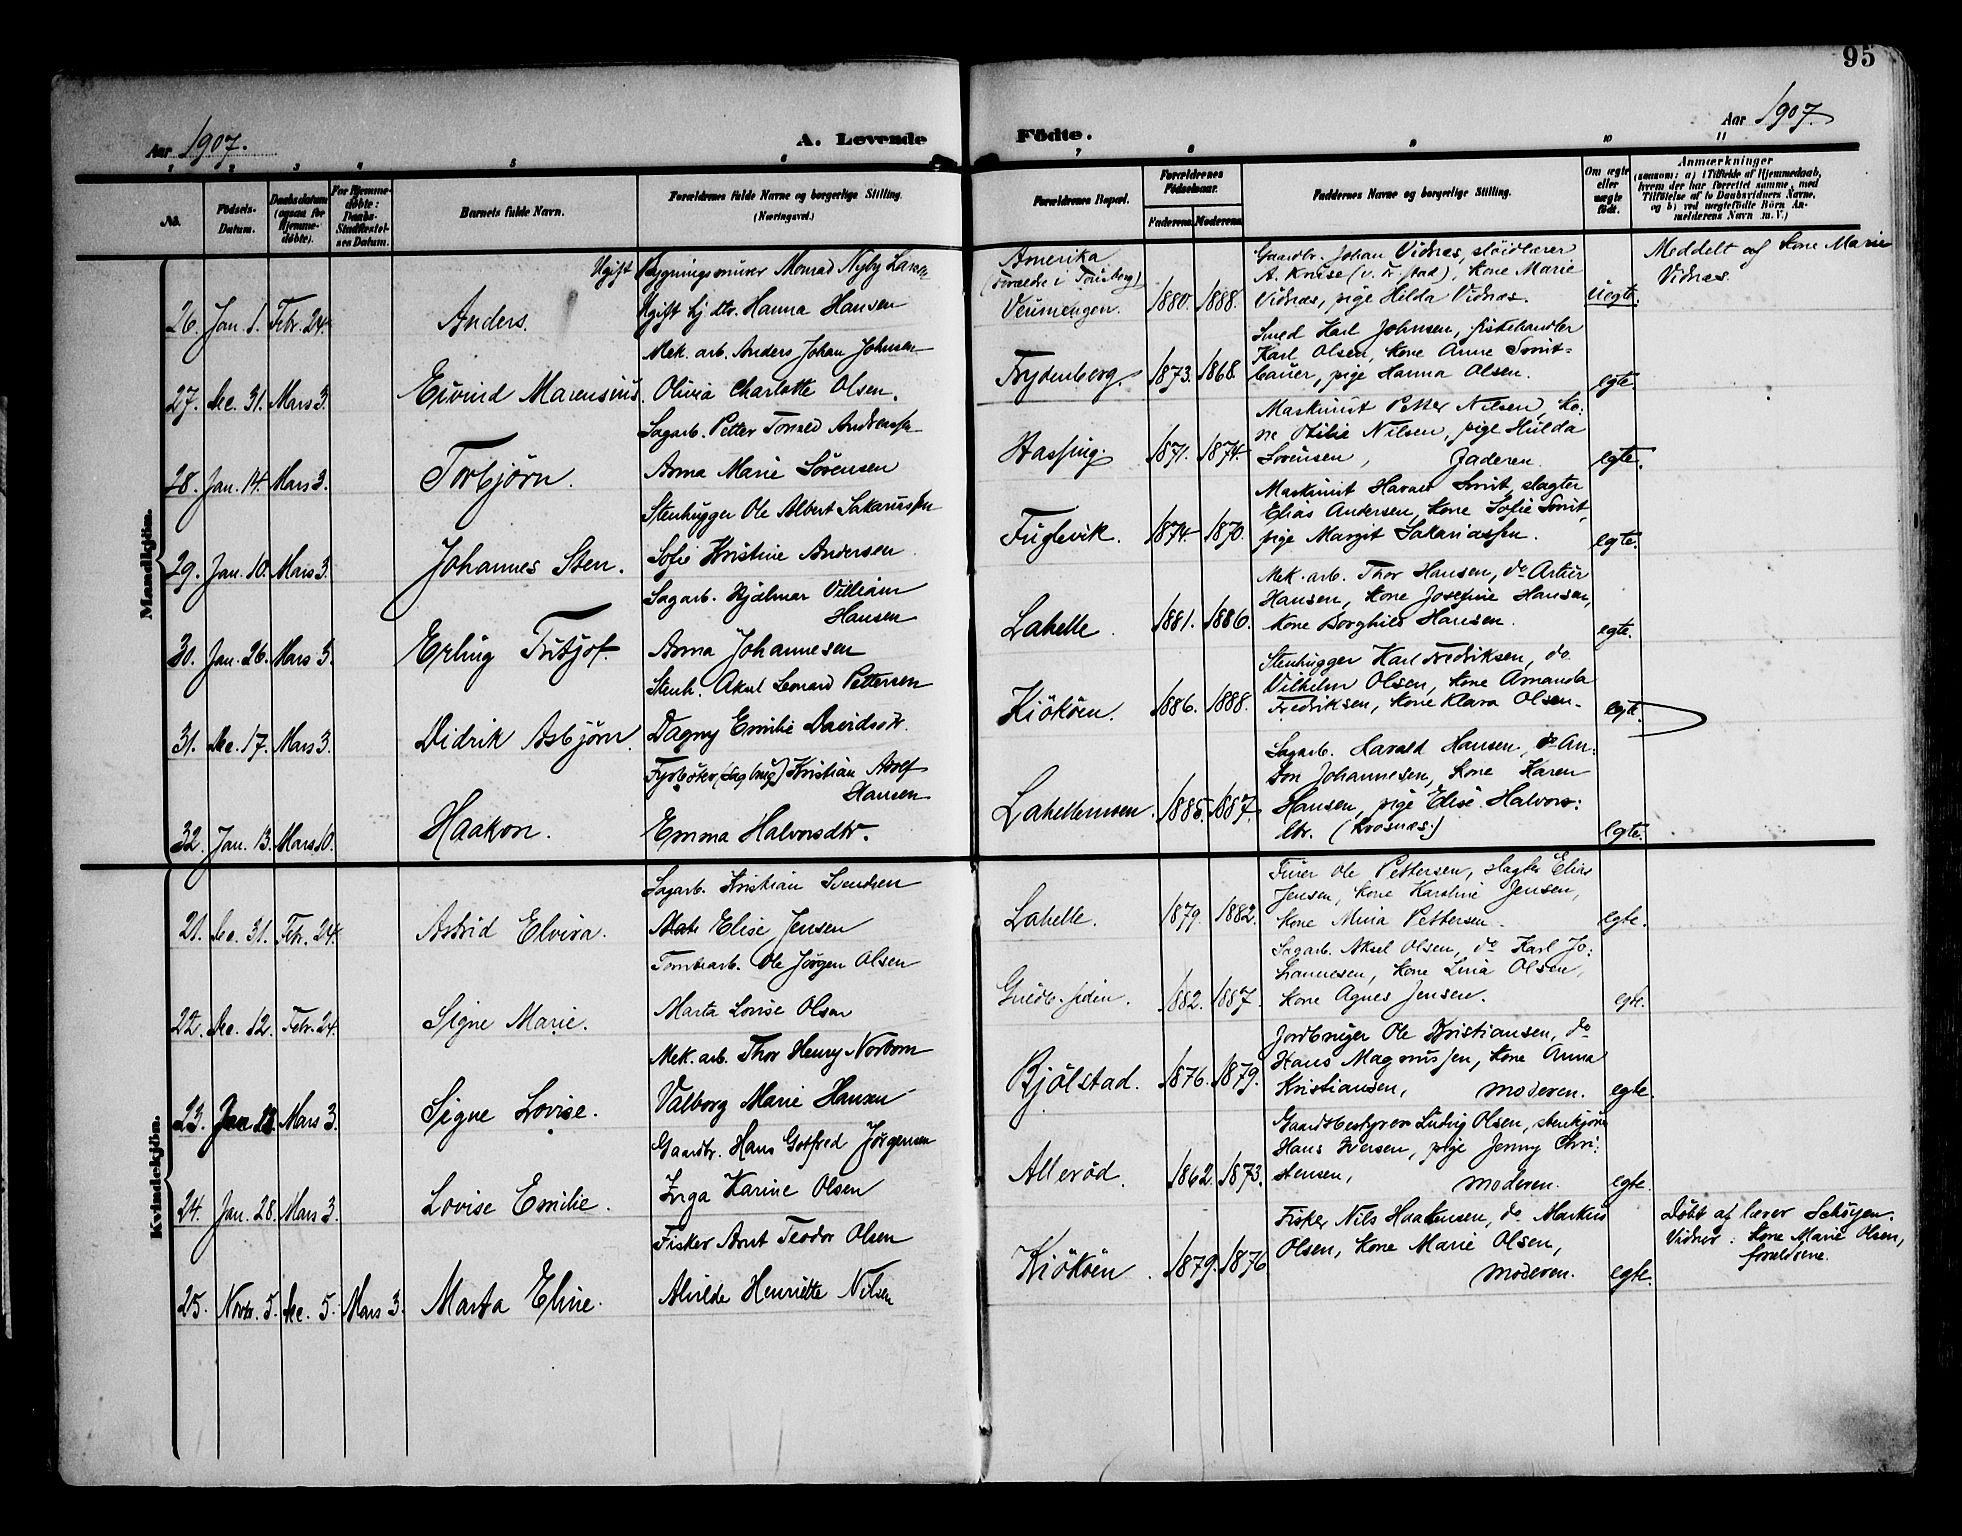 95
Aar 1907.
A. Levende Födte.
Aar 1907.
1 2 3 4 5 6 7 8 9 10 11
No.
Födsels-Datum.
Daabsdatum (ogsaa for Hjemme-döbte).
For Hjemme-döbte: Daabs-Stadfæstel-ses Datum.
Barnets fulde Navn.
Forældrenes fulde Navne og borgerlige Stilling. (Næringsvei.)
Forældrenes Bopæl.
Forældrenes Födselsaar.
Faderens.
Moderens.
Faddernes Navne og borgerlige Stilling.
Om ægte eller uægte födt.
Anmærkninger
(saasom: a) i Tilfælde af Hjemmedaab,
hvem der har forrettet samme, med
Tilföielse af to Daabsvidners Navne,
og b) ved uægtefödte Börn An-
melderens Navn m. V.)
Mandkjön.
26. Jan. 1. Febr. 24.
Anders.
Ugift Bygningssnirer Monrad Nyby Larsen
Ugift hj. dtr. Hanna Hansen
Amerika
(Forældre i Tönsberg)
Veumengen.
1880. 1888.
Gaardbr. Johan Vidnæs, slöidlærer
A. Kruse (v. Fr.stad), Kone Marie
Vidnæs, pige Hilda Vidnæs.
Uegte.
Meddelt af Kone Marie
Vidnæs.
27. Dec. 31. Mars 3.
Eivind Marensius.
Mek. arb. Anders Johan Johnsen
Olivia Charlotte Olsen.
Frydenberg.
1873. 1868.
Smed Karl Johnsen, fiskehandler
Karl Olsen, Kone Anne Smit-
bauer, pige Hanna Olsen.
egte
28. Jan. 14. Mars 3.
Torbjörn.
Sagarb. Petter Tonald Andreassen
Anna Marie Sörensen
Hassing.
1871. 1874.
Maskinist Petter Nilsen, Ko-
ne Otilie Nilsen, pige Hulda
Sörensen, Faderen.
egte.
29. Jan. 10. Mars 3.
Johannes Sten.
Stenhugger Ole Albert Sakariassen
Sofie Kristine Andersen
Fuglevik.
1874. 1870.
Maskinist Harald Smit, slagter
Elias Andersen, Kone Sofie Smit,
pige Margit Sakariassen.
egte.
30. Jan. 26. Mars 3.
Erling Fritjof.
Sagarb. Hjalmar Villiam
Hansen
Anna Johannesen
Lahelle.
1881. 1886.
Mek. arb. Thor Hansen, do Artur
Hansen, Kone Josefine Hansen,
Kone Borghild Hansen.
egte.
31. Dec. 17. Mars 3.
Didrik Asbjörn.
Stenh. Aksel Leonard Pettersen
Dagny Emilie Davidsdr.
Kiököen.
1886. 1888.
Stenhugger Karl Fredriksen, do
Vilhelm Olsen, Kone Amanda
Fredriksen, Kone Klara Olsen.
egte.
32. Jan. 13. Mars 10.
Haakon.
Fyrböter (Sagbrug) Kristian Adolf
Hansen
Emma Halvorsdtr.
Lahellemoen.
1885. 1887.
Sagarb. Harald Hansen, do An-
ton Johannesen, Kone Karen
Hansen, pige Elise Halvors-
dtr. (Krosnæs.)
egte.
Kvindekjön.
21. Dec. 31. Febr. 24.
Astrid Elvira.
Sagarb. Kristian Svendsen
Elise Jensen
Lahelle.
1879. 1882.
Ole Pettersen, slagter Elias
Jensen, Kone Karoline Jensen,
Kone Mina Pettersen.
egte.
22. Dec. 12. Febr. 24.
Signe Marie.
Tomtearb. Ole Jörgen Olsen
Marta Lovise Olsen
1882. 1887.
Sagarb. Aksel Olsen, do Karl Jo-
hannesen, Kone Lina Olsen,
Kone Agnes Jensen.
egte.
23. Jan. 13. Mars 3.
Signe Lovise.
Mek. arb. Thor Henry Norbom
Valborg Marie Hansen
Bjölstad.
1876. 1879.
Jordbruger Ole Kristiansen, do
Hans Magnussen, Kone Anna
Kristiansen, moderen.
egte.
24. Jan. 28. Mars 3.
Lovise Emilie.
Gaardbr. Hans Gotfred Jörgensen
Inga Karine Olsen
Alleröd.
1862. 1873.
Gaardbestyrer Ludvig Olsen, stenkjörer
Hans Iversen, pige Jenny Chri-
stensen, moderen.
egte.
25. Novbr. 5. Dec. 5. Mars 3.
Marta Eline.
Fisker Arnt Teodor Olsen
Alvilde Henriette Nilsen
Kiököen.
1879. 1876.
Fisker Nils Haakensen, do Markus
Olsen, Kone Marie Olsen,
moderen.
egte.
Döbt af lærer Schöyen.
Vidner: Kone Marie Olsen,
forældrene.